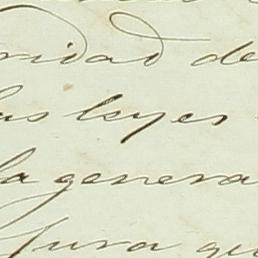 ridad de
las leyes
la genera
Jura que